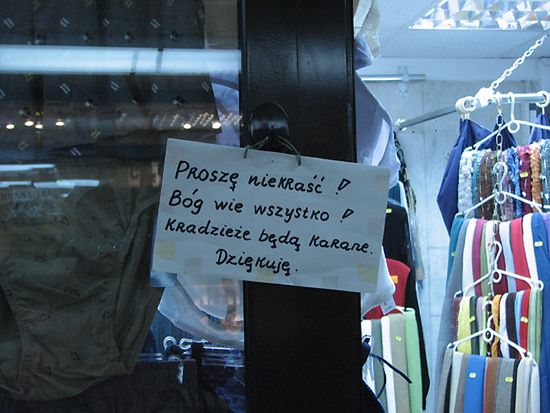 Proszę niekraść !
Bóg wie wszystko !
Kradzieże będą karane.
Dziękuję.